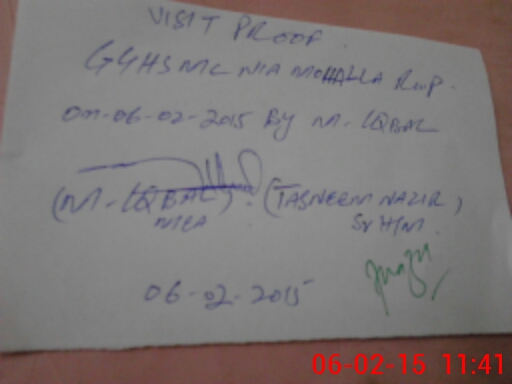 VISIT PROOF.
GGHS MC NIA MOHALLA RWP.
on-06-02-2015 By M. IQBAL
(M. IQBAL) . (TASNEEM NAZIR)
MEA Sr H/M.
06-02-2015
06-02-15 11:41